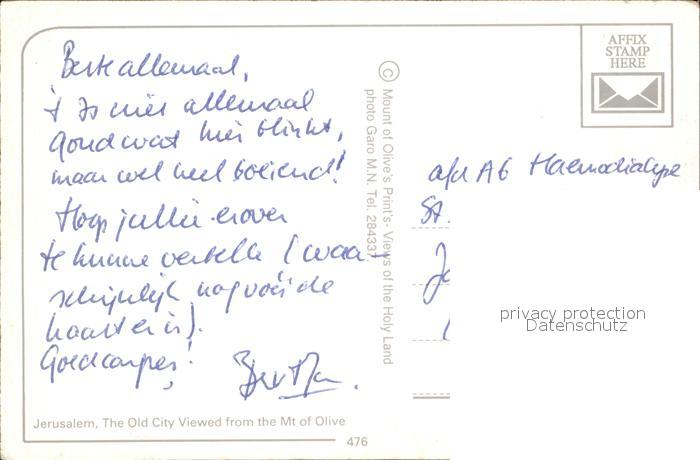 Beste allemaal,
't Is niet allemaal
Goud wat hier blinkt,
maar wel heel boeiend!
Hoop jullie erover
te kunnen vertellen (waar-
schijnlijk nog vóór de
kaart er is).
Goed
AFFIX
STAMP
HERE
© Mount of Olive's Print's- Views of the Holy Land
photo Garo M.N. Tel. 284337
afd A6 Haemodialyse
St.
privacy protection
Datenschutz
Jerusalem, The Old City Viewed from the Mt of Olive
476